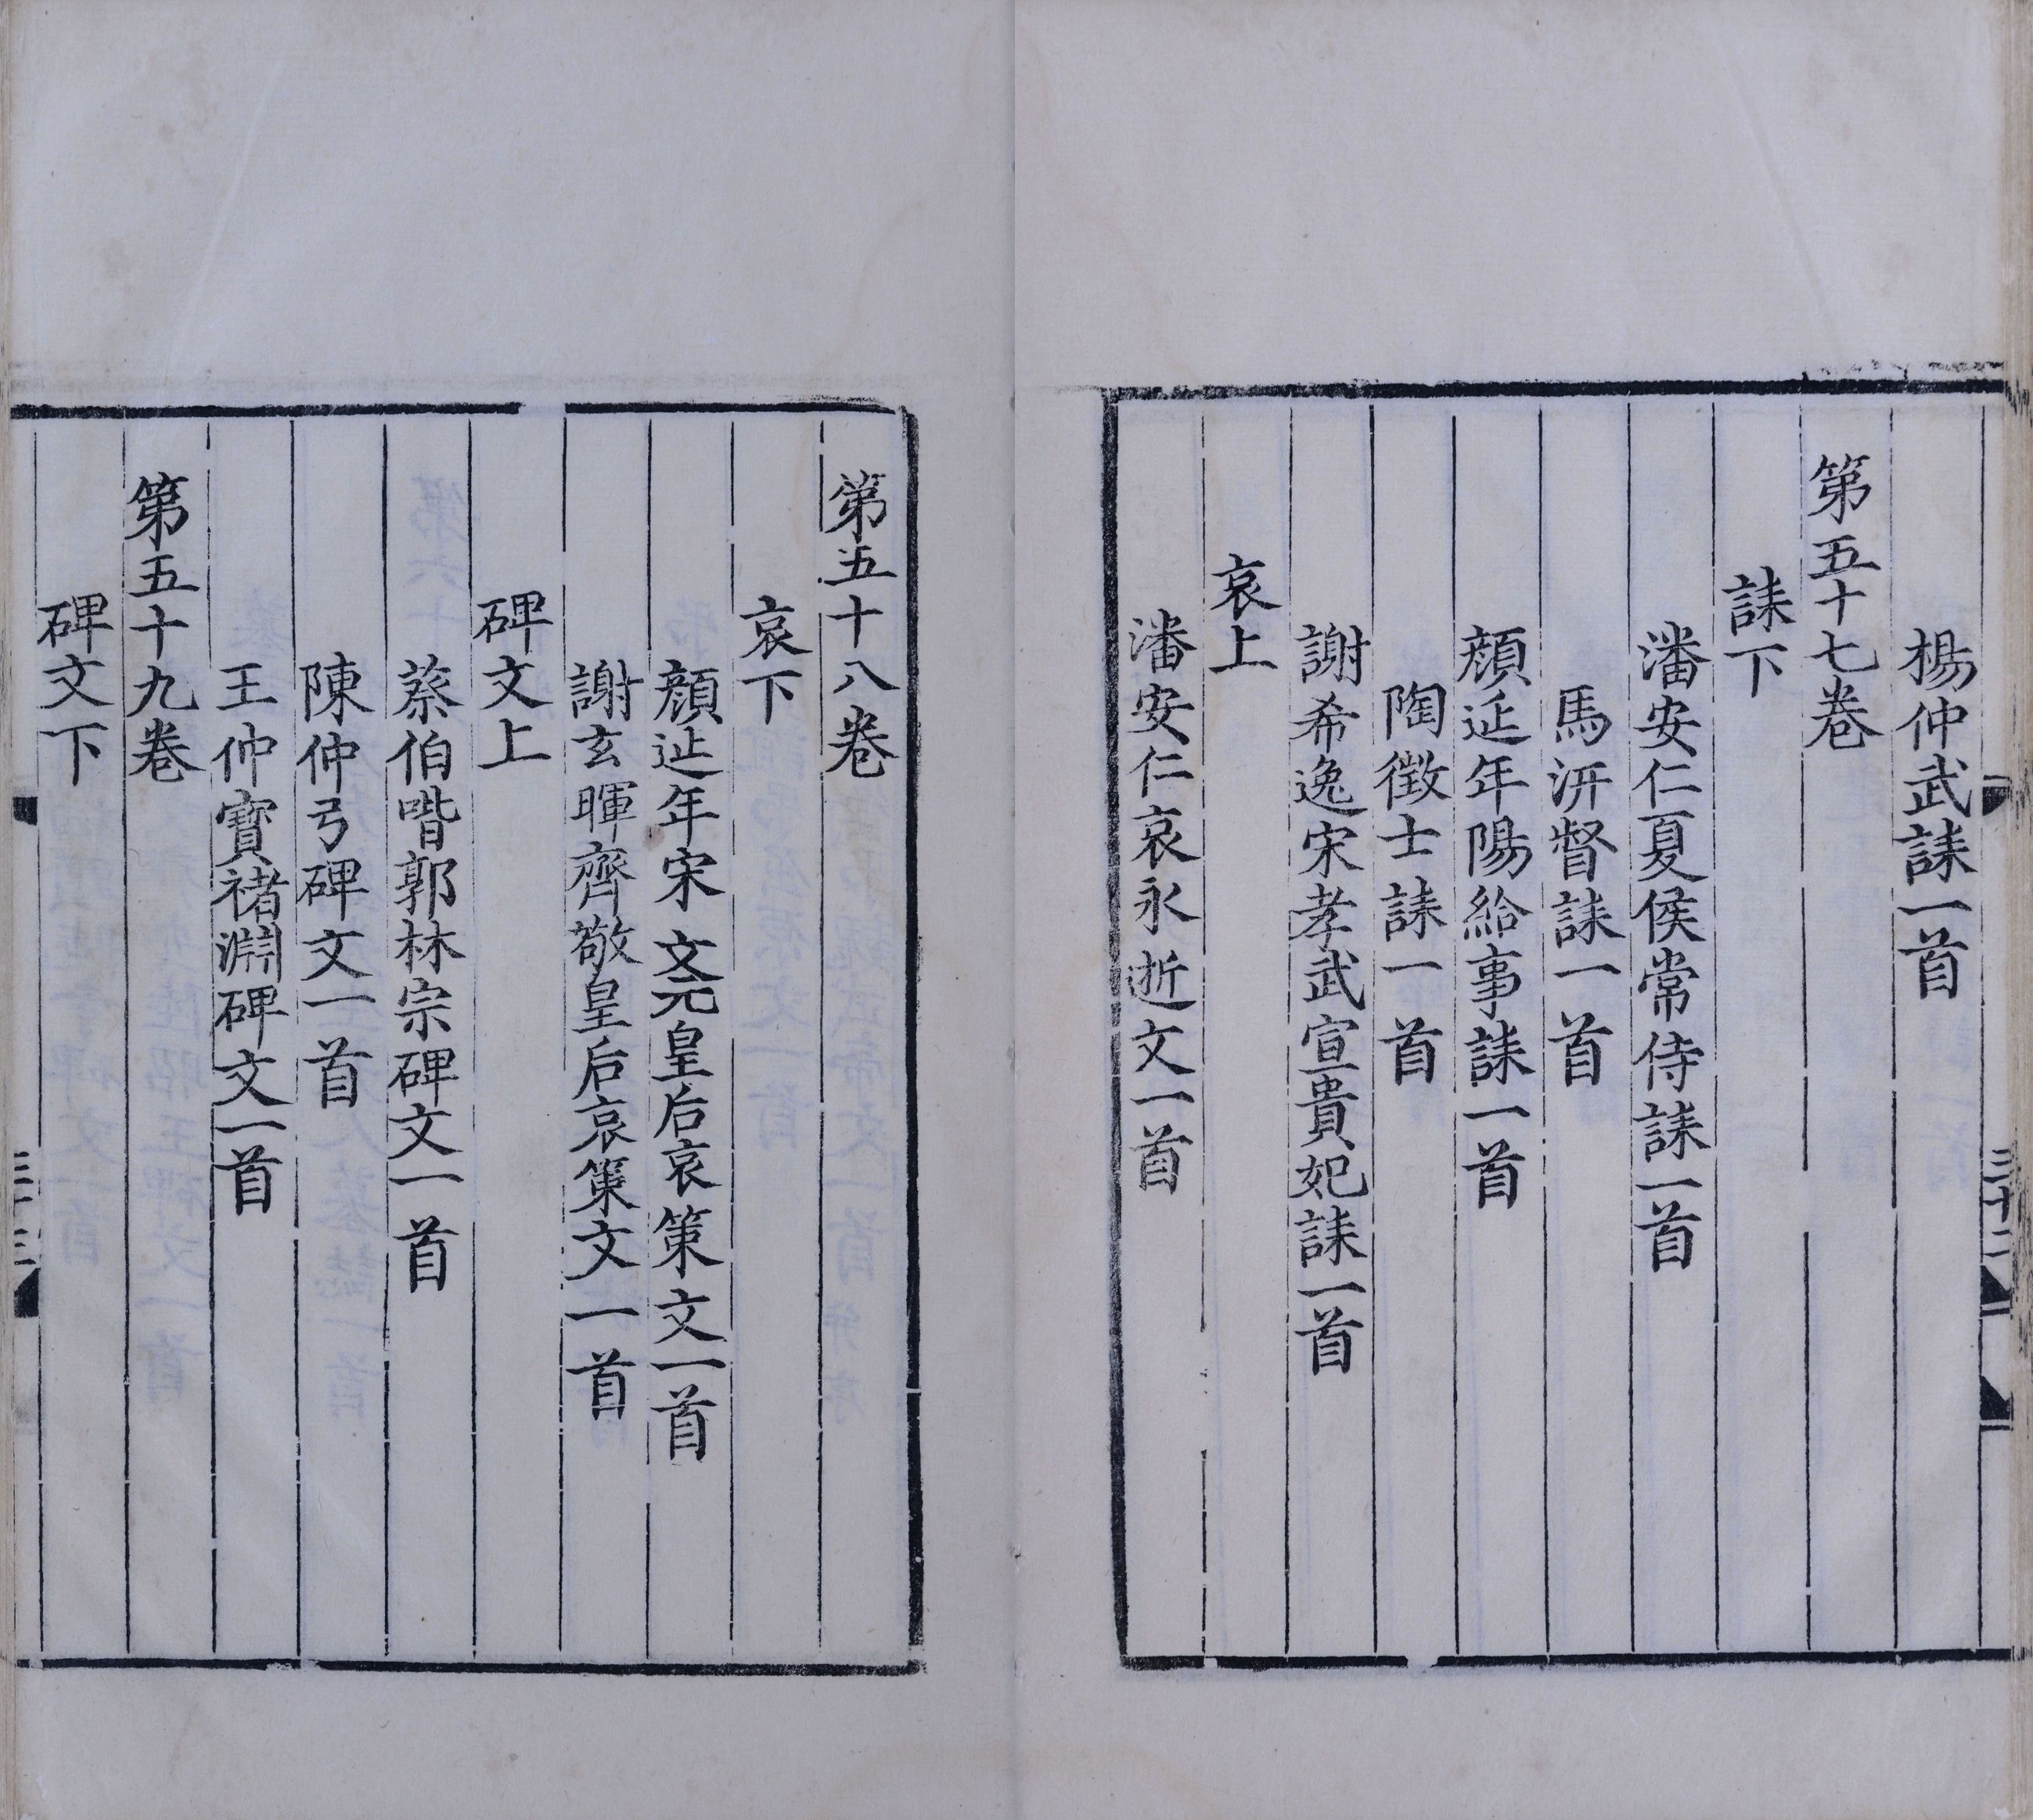 楊仲武誄一首
第五十七卷
誄下
潘安仁夏侯常侍誄一首
馬汧督誄一首
顔延年陽給事誄一首
陶徵士誄一首
謝希逸宋孝武宣貴妃誄一首
哀上
潘安仁哀永逝文一首
三十二
第五十八卷
哀下
顔延年宋文元皇后哀策文一首
謝玄暉齊敬皇后哀策文一首
碑文上
蔡伯喈郭林宗碑文一首
陳仲弓碑文一首
王仲寶禇淵碑文一首
第五十九卷
碑文下